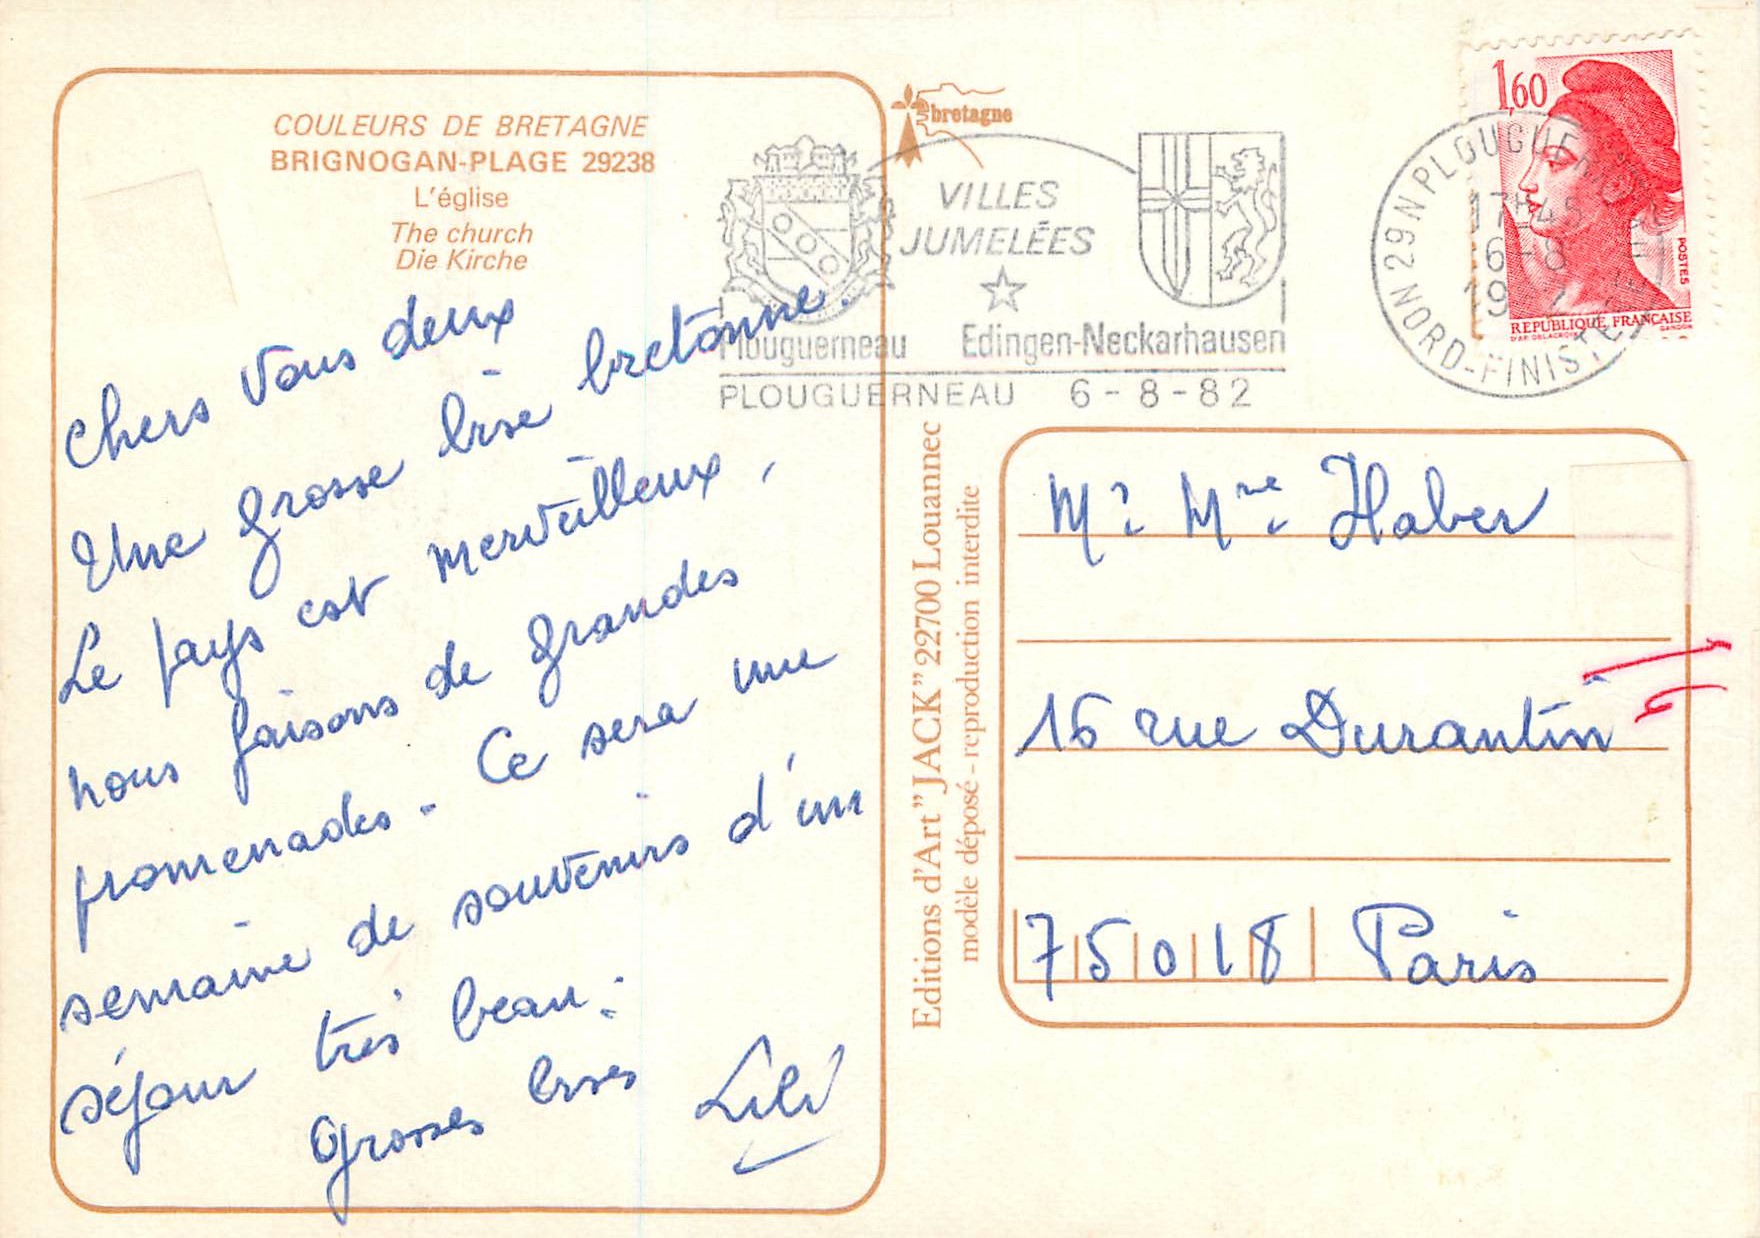 COULEURS DE BRETAGNE
BRIGNOGAN-PLAGE 29238
L'église
The church
Die Kirche
Chers vous deux
Une grosse bise bretonne.
Le pays est merveilleux,
nous faisons de grandes
promenades. Ce sera une
semaine de souvenirs d'un
séjour très beau.
Grosses bises Lili
bretagne
VILLES
JUMELÉES
Plouguerneau Edingen-Neckarhausen
PLOUGUERNEAU 6-8-82
Editions d'Art "JACK" 22700 Louannec
modèle déposé - reproduction interdite
1,60
POSTES
REPUBLIQUE FRANÇAISE
D'AP. DELACROIX
GANDON
29 N PLOUGUERNEAU
17H45
6-8
19 2
NORD-FINISTERE
Mr Mme Haber
16 rue Durantin
75018 Paris